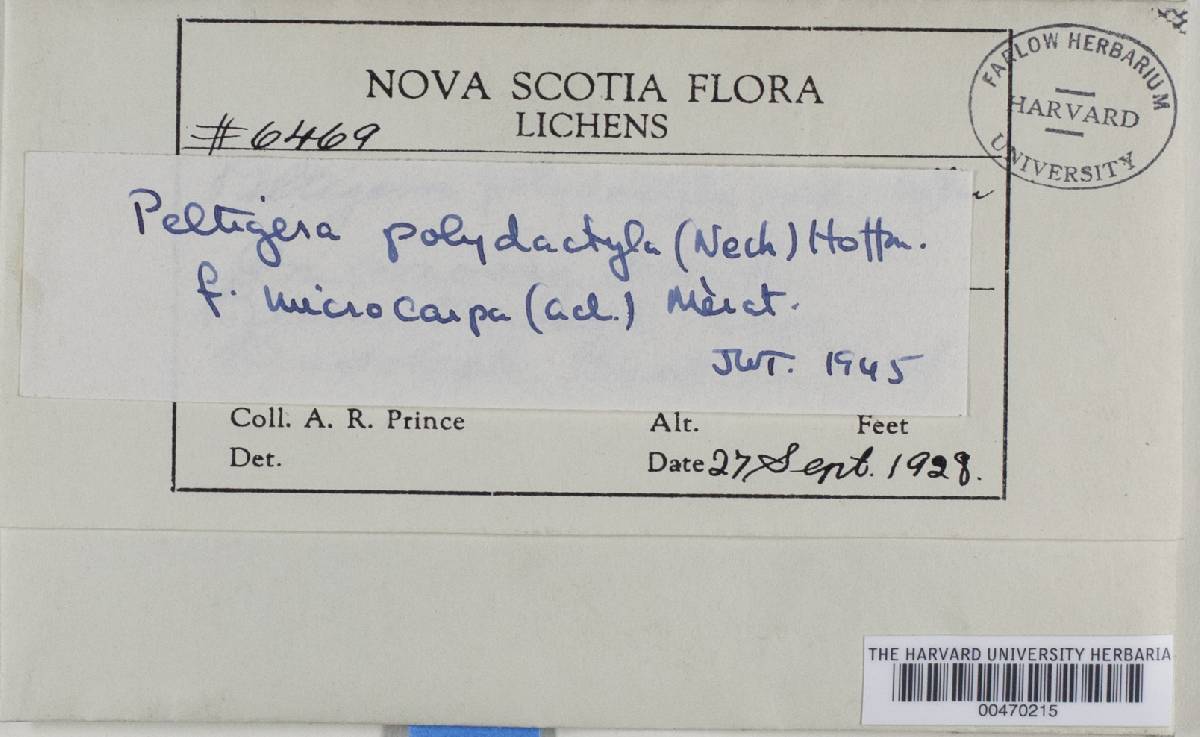 NOVA SCOTIA FLORA
LICHENS
#6469
FARLOW HERBARIUM
HARVARD
UNIVERSITY
Peltigera polydactyla (Neck) Hoffm.
f. microcarpa (Ach.) Mèrat.
JWT. 1945
Coll. A. R. Prince
Alt. Feet
Det.
Date 27, Sept. 1928.
THE HARVARD UNIVERSITY HERBARIA
00470215